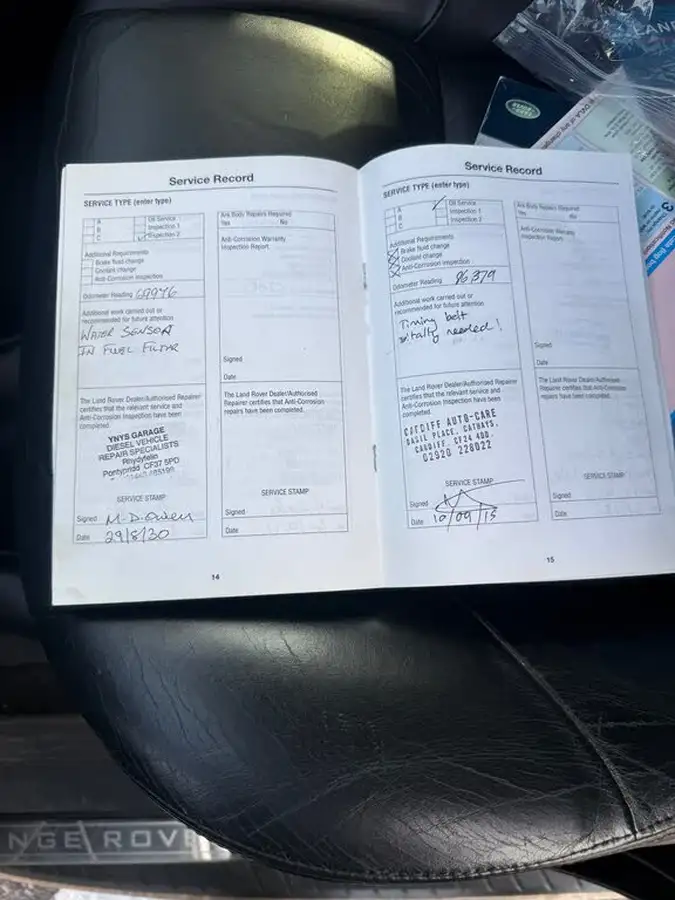 Service Record
SERVICE TYPE (enter type)
A
B
C
Oil Service
Inspection 1
Inspection 2
Additional Requirements
Brake fluid change
Coolant change
Anti-Corrosion Inspection
Odometer Reading 69946
Additional work carried out or
recommended for future attention
WATER SENSOR
IN FUEL FILTER
The Land Rover Dealer/Authorised Repairer
certifies that the relevant service and
Anti-Corrosion Inspection have been
completed.
YNYS GARAGE
DIESEL VEHICLE
REPAIR SPECIALISTS
Rhydyfelin
Pontypridd CF37 5PD
SERVICE STAMP
Signed M.D.Owen
Date 29/8/30
Are Body Repairs Required
Yes No
Anti-Corrosion Warranty
Inspection Report
Signed
Date
The Land Rover Dealer/Authorised
Repairer certifies that Anti-Corrosion
repairs have been completed.
SERVICE STAMP
Signed
Date
14
Service Record
SERVICE TYPE (enter type)
A
B
C
Oil Service
Inspection 1
Inspection 2
Additional Requirements
Brake fluid change
Coolant change
Anti-Corrosion Inspection
Odometer Reading 86379
Additional work carried out or
recommended for future attention
Timing belt
vitally needed!
The Land Rover Dealer/Authorised Repairer
certifies that the relevant service and
Anti-Corrosion Inspection have been
completed.
CARDIFF AUTO-CARE
DASIL PLACE, CATHAYS,
CARDIFF, CF24 4DD.
02920 228022
SERVICE STAMP
Signed
Date 10/09/15
Are Body Repairs Required
Yes No
Anti-Corrosion Warranty
Inspection Report
Signed
Date
The Land Rover Dealer/Authorised
Repairer certifies that Anti-Corrosion
repairs have been completed.
SERVICE STAMP
Signed
Date
15
NGE ROV